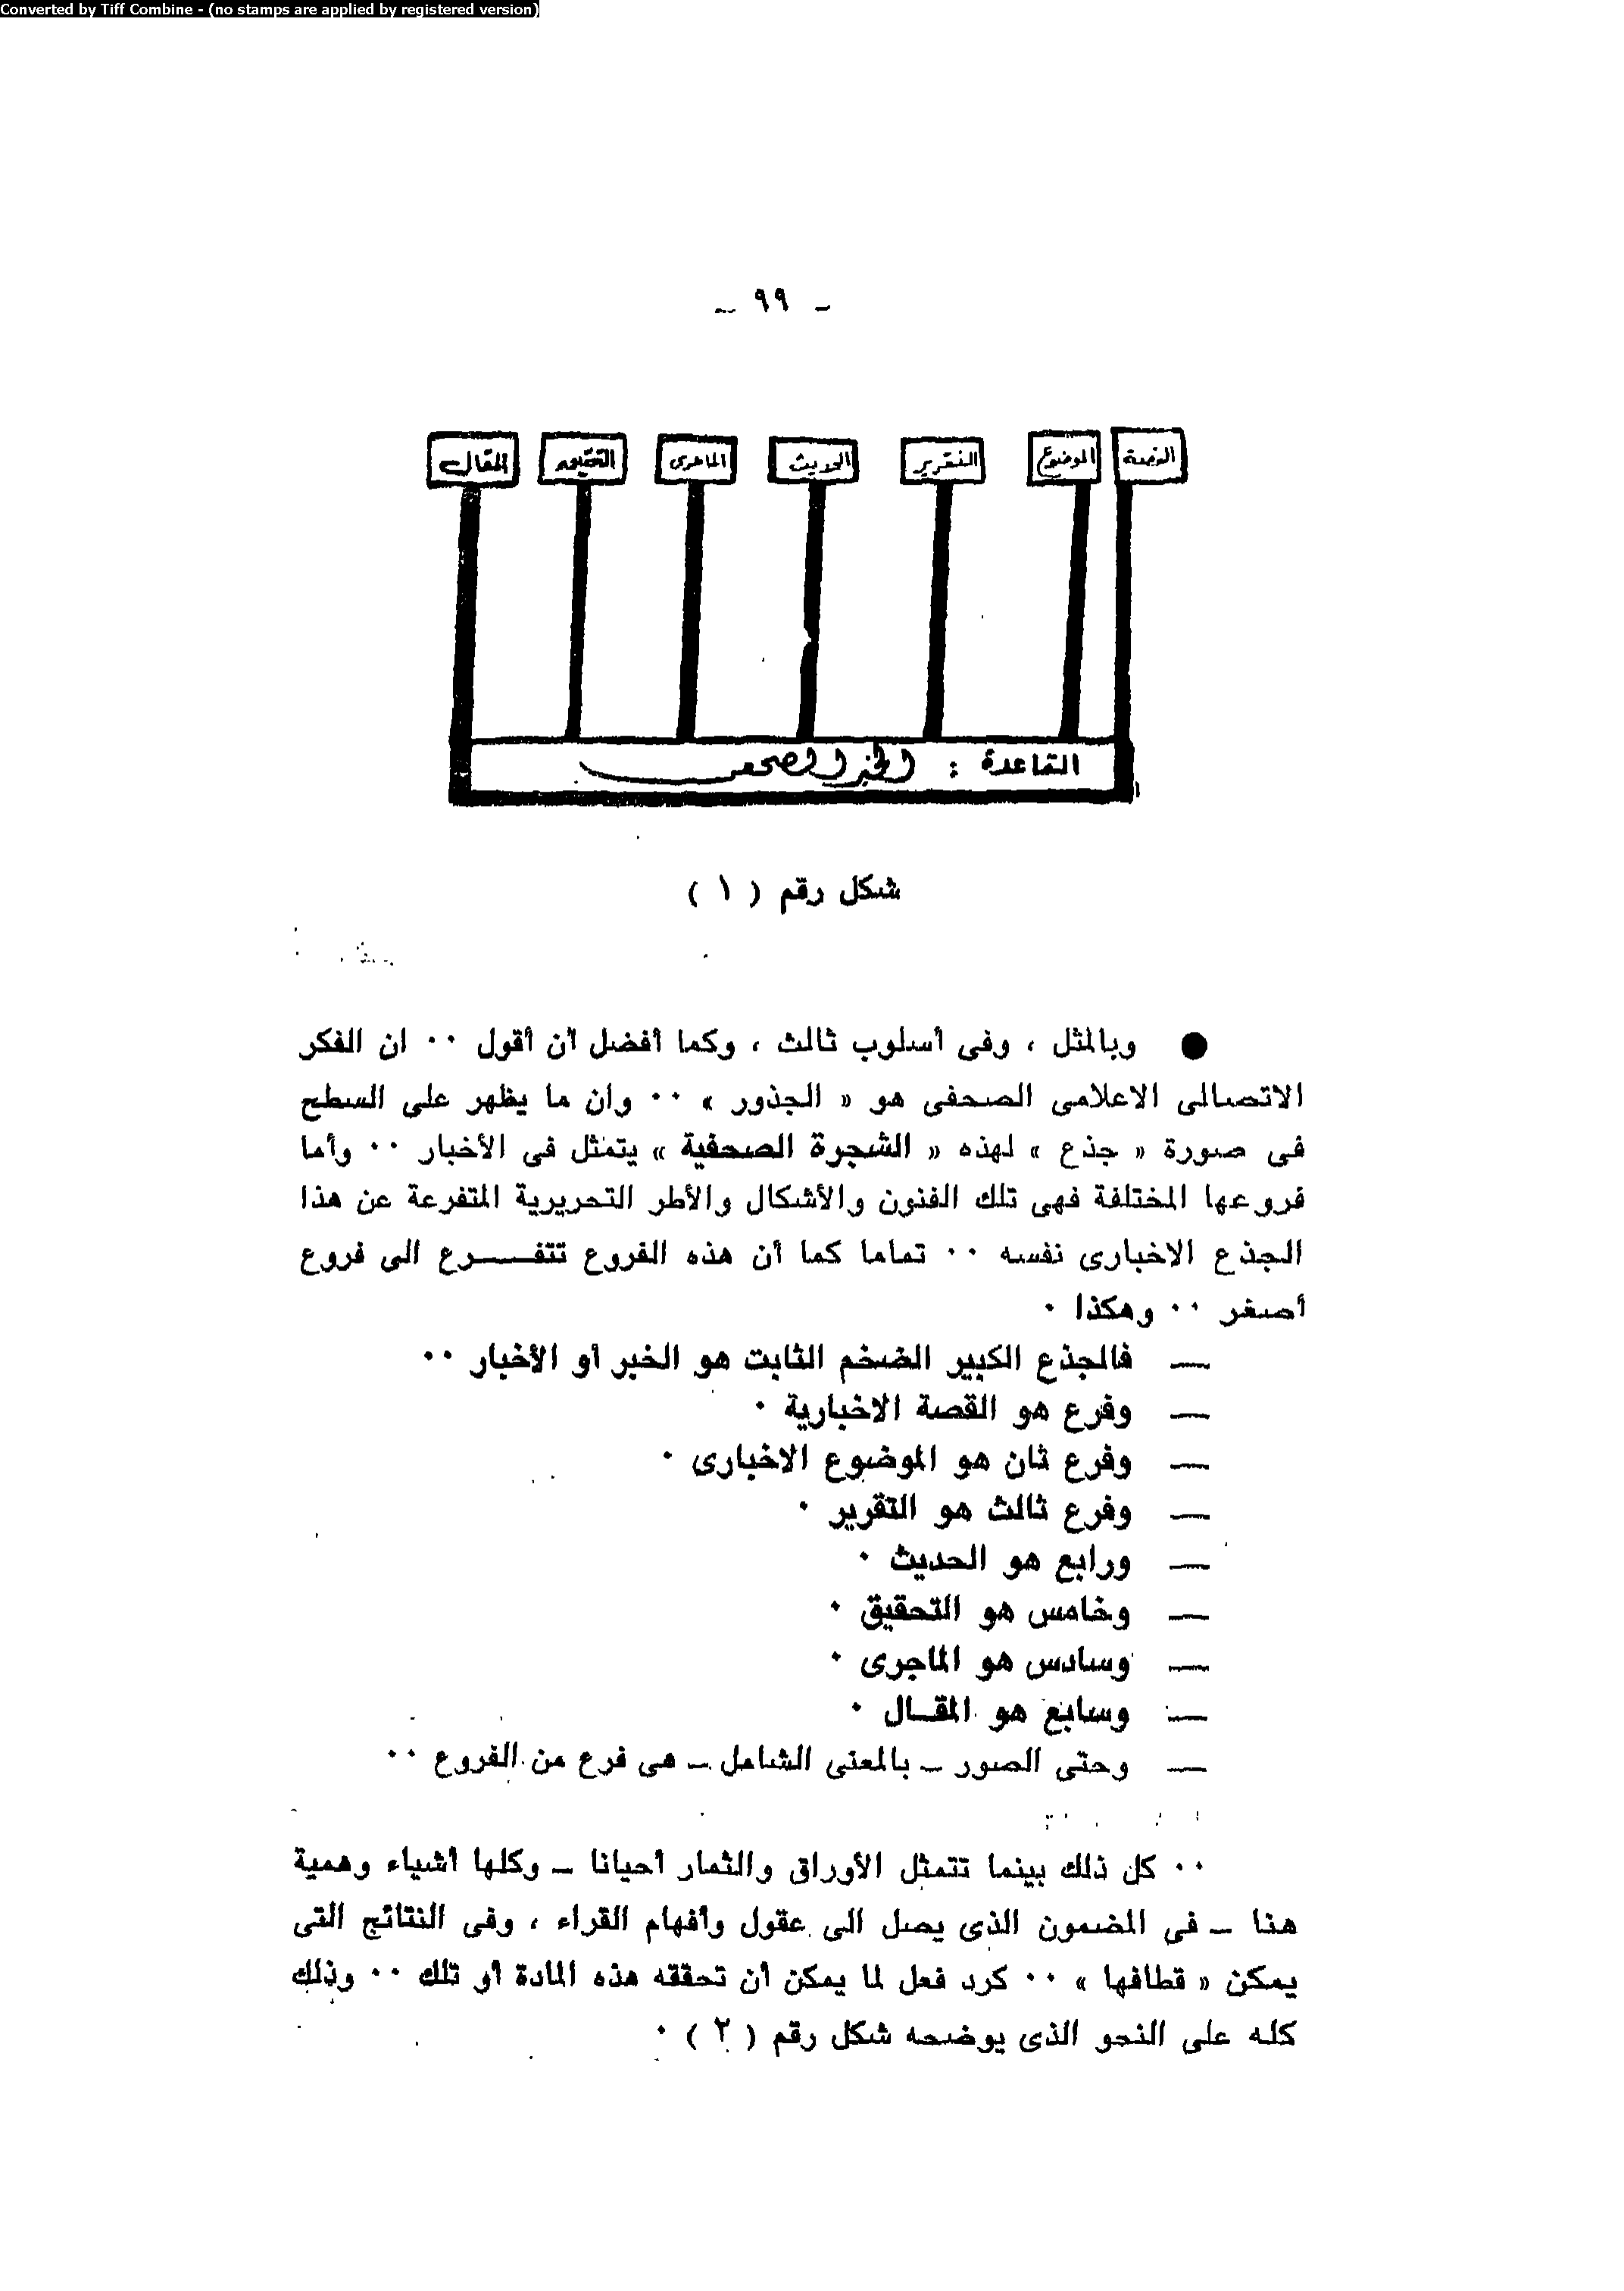 Converted by Tiff Combine - (no stamps are applied by registered version)
ـ ٩٩ ـ
القصة الموضوع التقرير الحديث الماجرى التحقيق المقال
القاعدة : الخبر الصحفى
شكل رقم ( ١ )
● وبالمثل ، وفى أسلوب ثالث ، وكما أفضل أن أقول ٠٠ ان الفكر
الاتصالى الاعلامى الصحفى هو « الجذور » ٠٠ وان ما يظهر على السطح
فى صورة « جذع » لهذه « الشجرة الصحفية » يتمثل فى الأخبار ٠٠ وأما
فروعها المختلفة فهى تلك الفنون والأشكال والأطر التحريرية المتفرعة عن هذا
الجذع الاخبارى نفسه ٠٠ تماما كما أن هذه الفروع تتفـــرع الى فروع
أصغر ٠٠ وهكذا ٠
— فالجذع الكبير الضخم الثابت هو الخبر أو الأخبار ٠٠
— وفرع هو القصة الاخبارية ٠
— وفرع ثان هو الموضوع الاخبارى ٠
— وفرع ثالث هو التقرير ٠
— ورابع هو الحديث ٠
— وخامس هو التحقيق ٠
— وسادس هو الماجرى ٠
— وسابع هو المقـال ٠
— وحتى الصور ـ بالمعنى الشامل ـ هى فرع من الفروع ٠٠
٠٠ كل ذلك بينما تتمثل الأوراق والثمار أحيانا ـ وكلها أشياء وهمية
هنا ـ فى المضمون الذى يصل الى عقول وأفهام القراء ، وفى النتائج التى
يمكن « قطافها » ٠٠ كرد فعل لما يمكن أن تحققه هذه المادة أو تلك ٠٠ وذلك
كله على النحو الذى يوضحه شكل رقم ( ٢ ) ٠